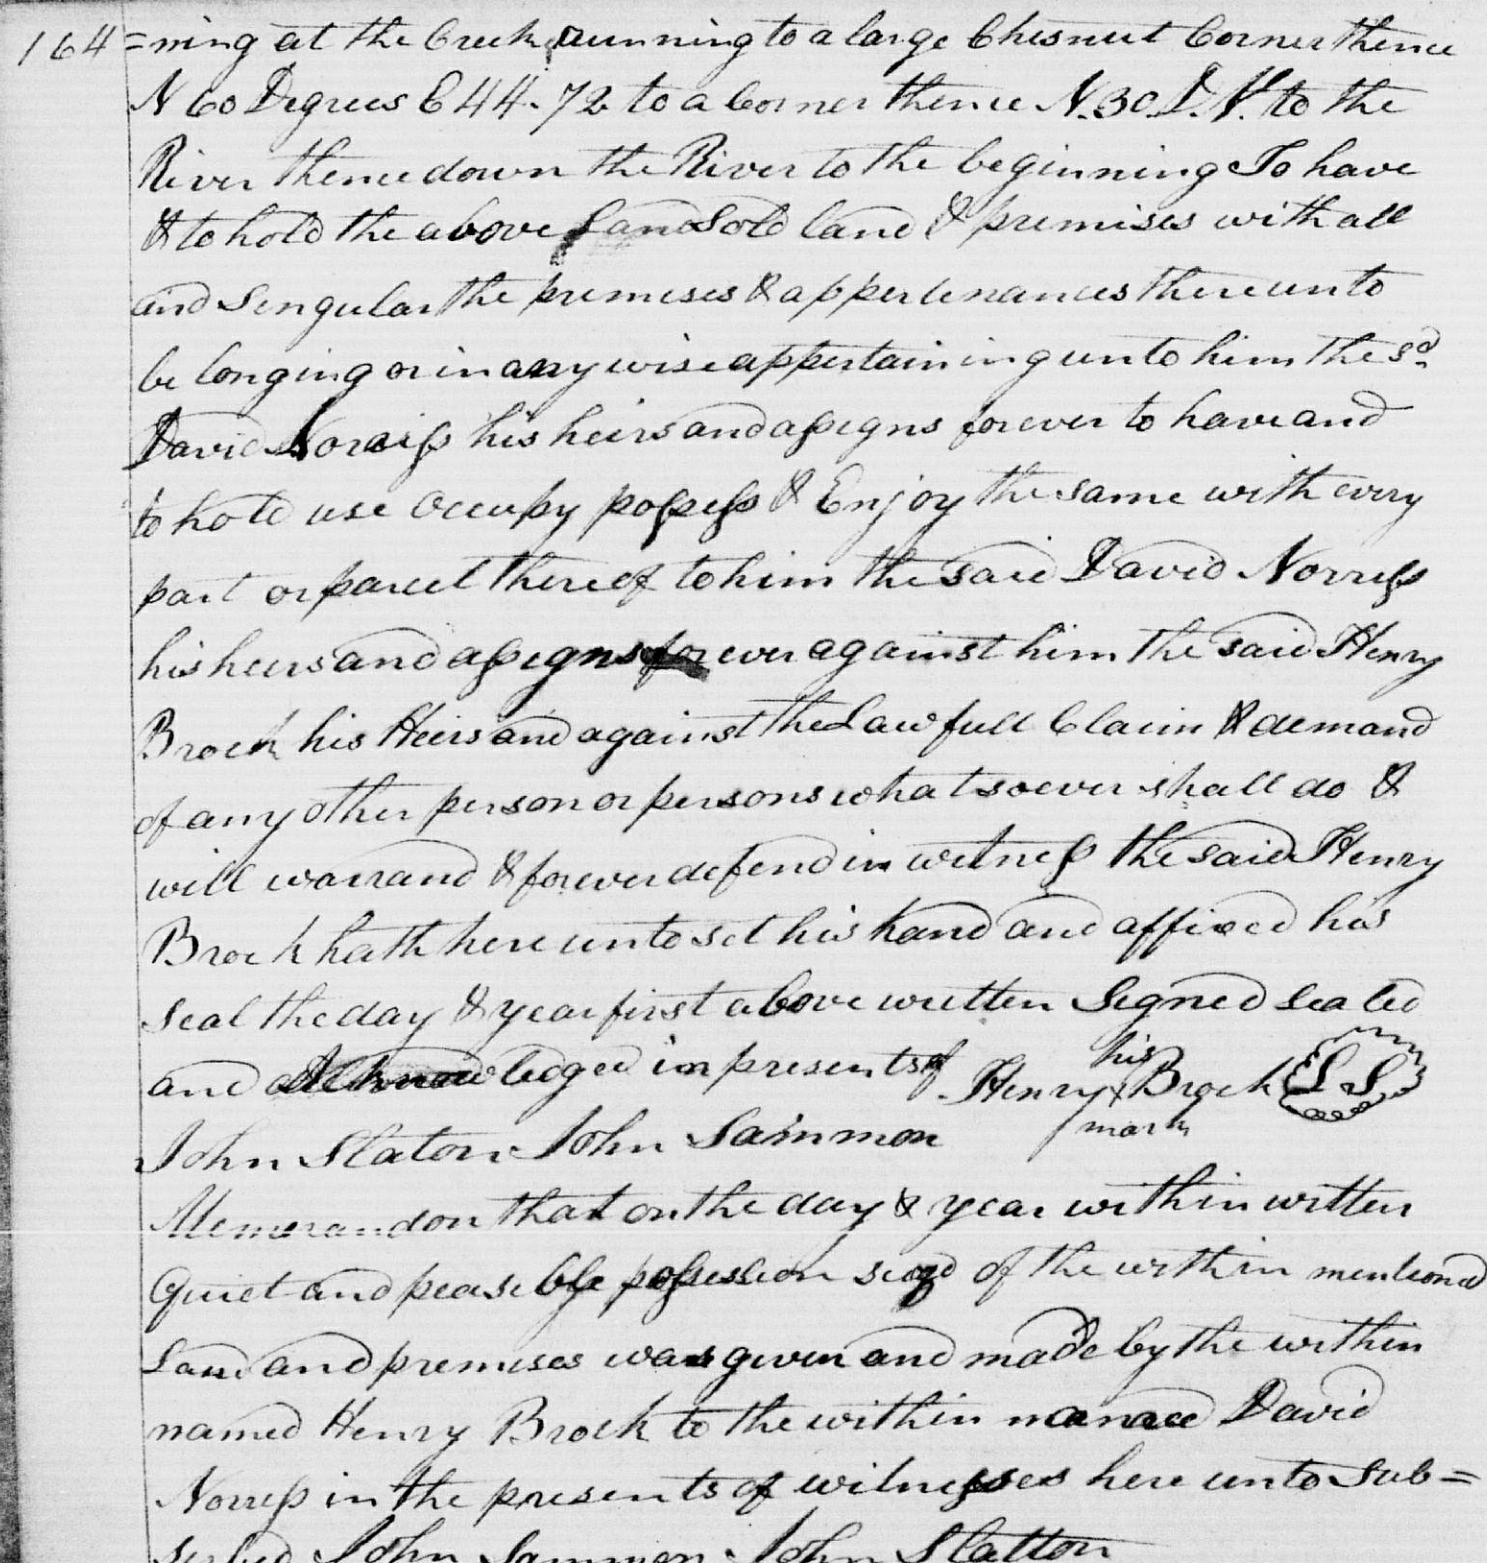 164 =ning at the Creek running to a large Chesnut Corner thence
N 60 Degrees E 44.72 to a Corner thence N. 30. D. W. to the
River thence down the River to the beginning To have
& to hold the above Land Sold land & premises with all
and Singular the premises & appertenances thereunto
be longing or in any wise appertaining unto him the sd
David Norriss his heirs and assigns forever to have and
to hold use Occupy possess & Enjoy the same with every
part or parcel thereof to him the said David Norress
his heirs and assigns for ever against him the said Henry
Brock his Heirs and against the Lawfull Claim & demand
of any other person or persons whatsoever shall do &
will warrand & forever defend in witness the said Henry
Brock hath here unto set his hand and affixed his
seal the day & year first above written Signed sealed
and acknowledged in presents of Henry his X mark Brock LS
John Slaton John Sammon
Memorandon that on the day & year within written
Quiet and peaseble possession siezd of the within mentioned
Land and premises was given and made by the within
named Henry Brock to the within named David
Norress in the presents of witnesses here unto Sub=
scribed John Sammon John Slatton